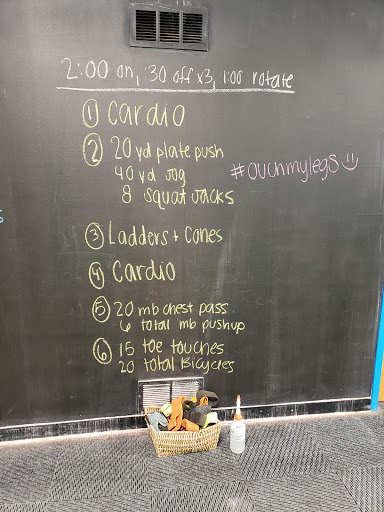 2:00 on, :30 off x3, 1:00 rotate
① Cardio
② 20 yd plate push
40 yd Jog
8 Squat Jacks
#ouchmylegs
③ Ladders + Cones
④ Cardio
⑤ 20 mb chest pass
6 total mb pushup
⑥ 15 toe touches
20 total Bicycles